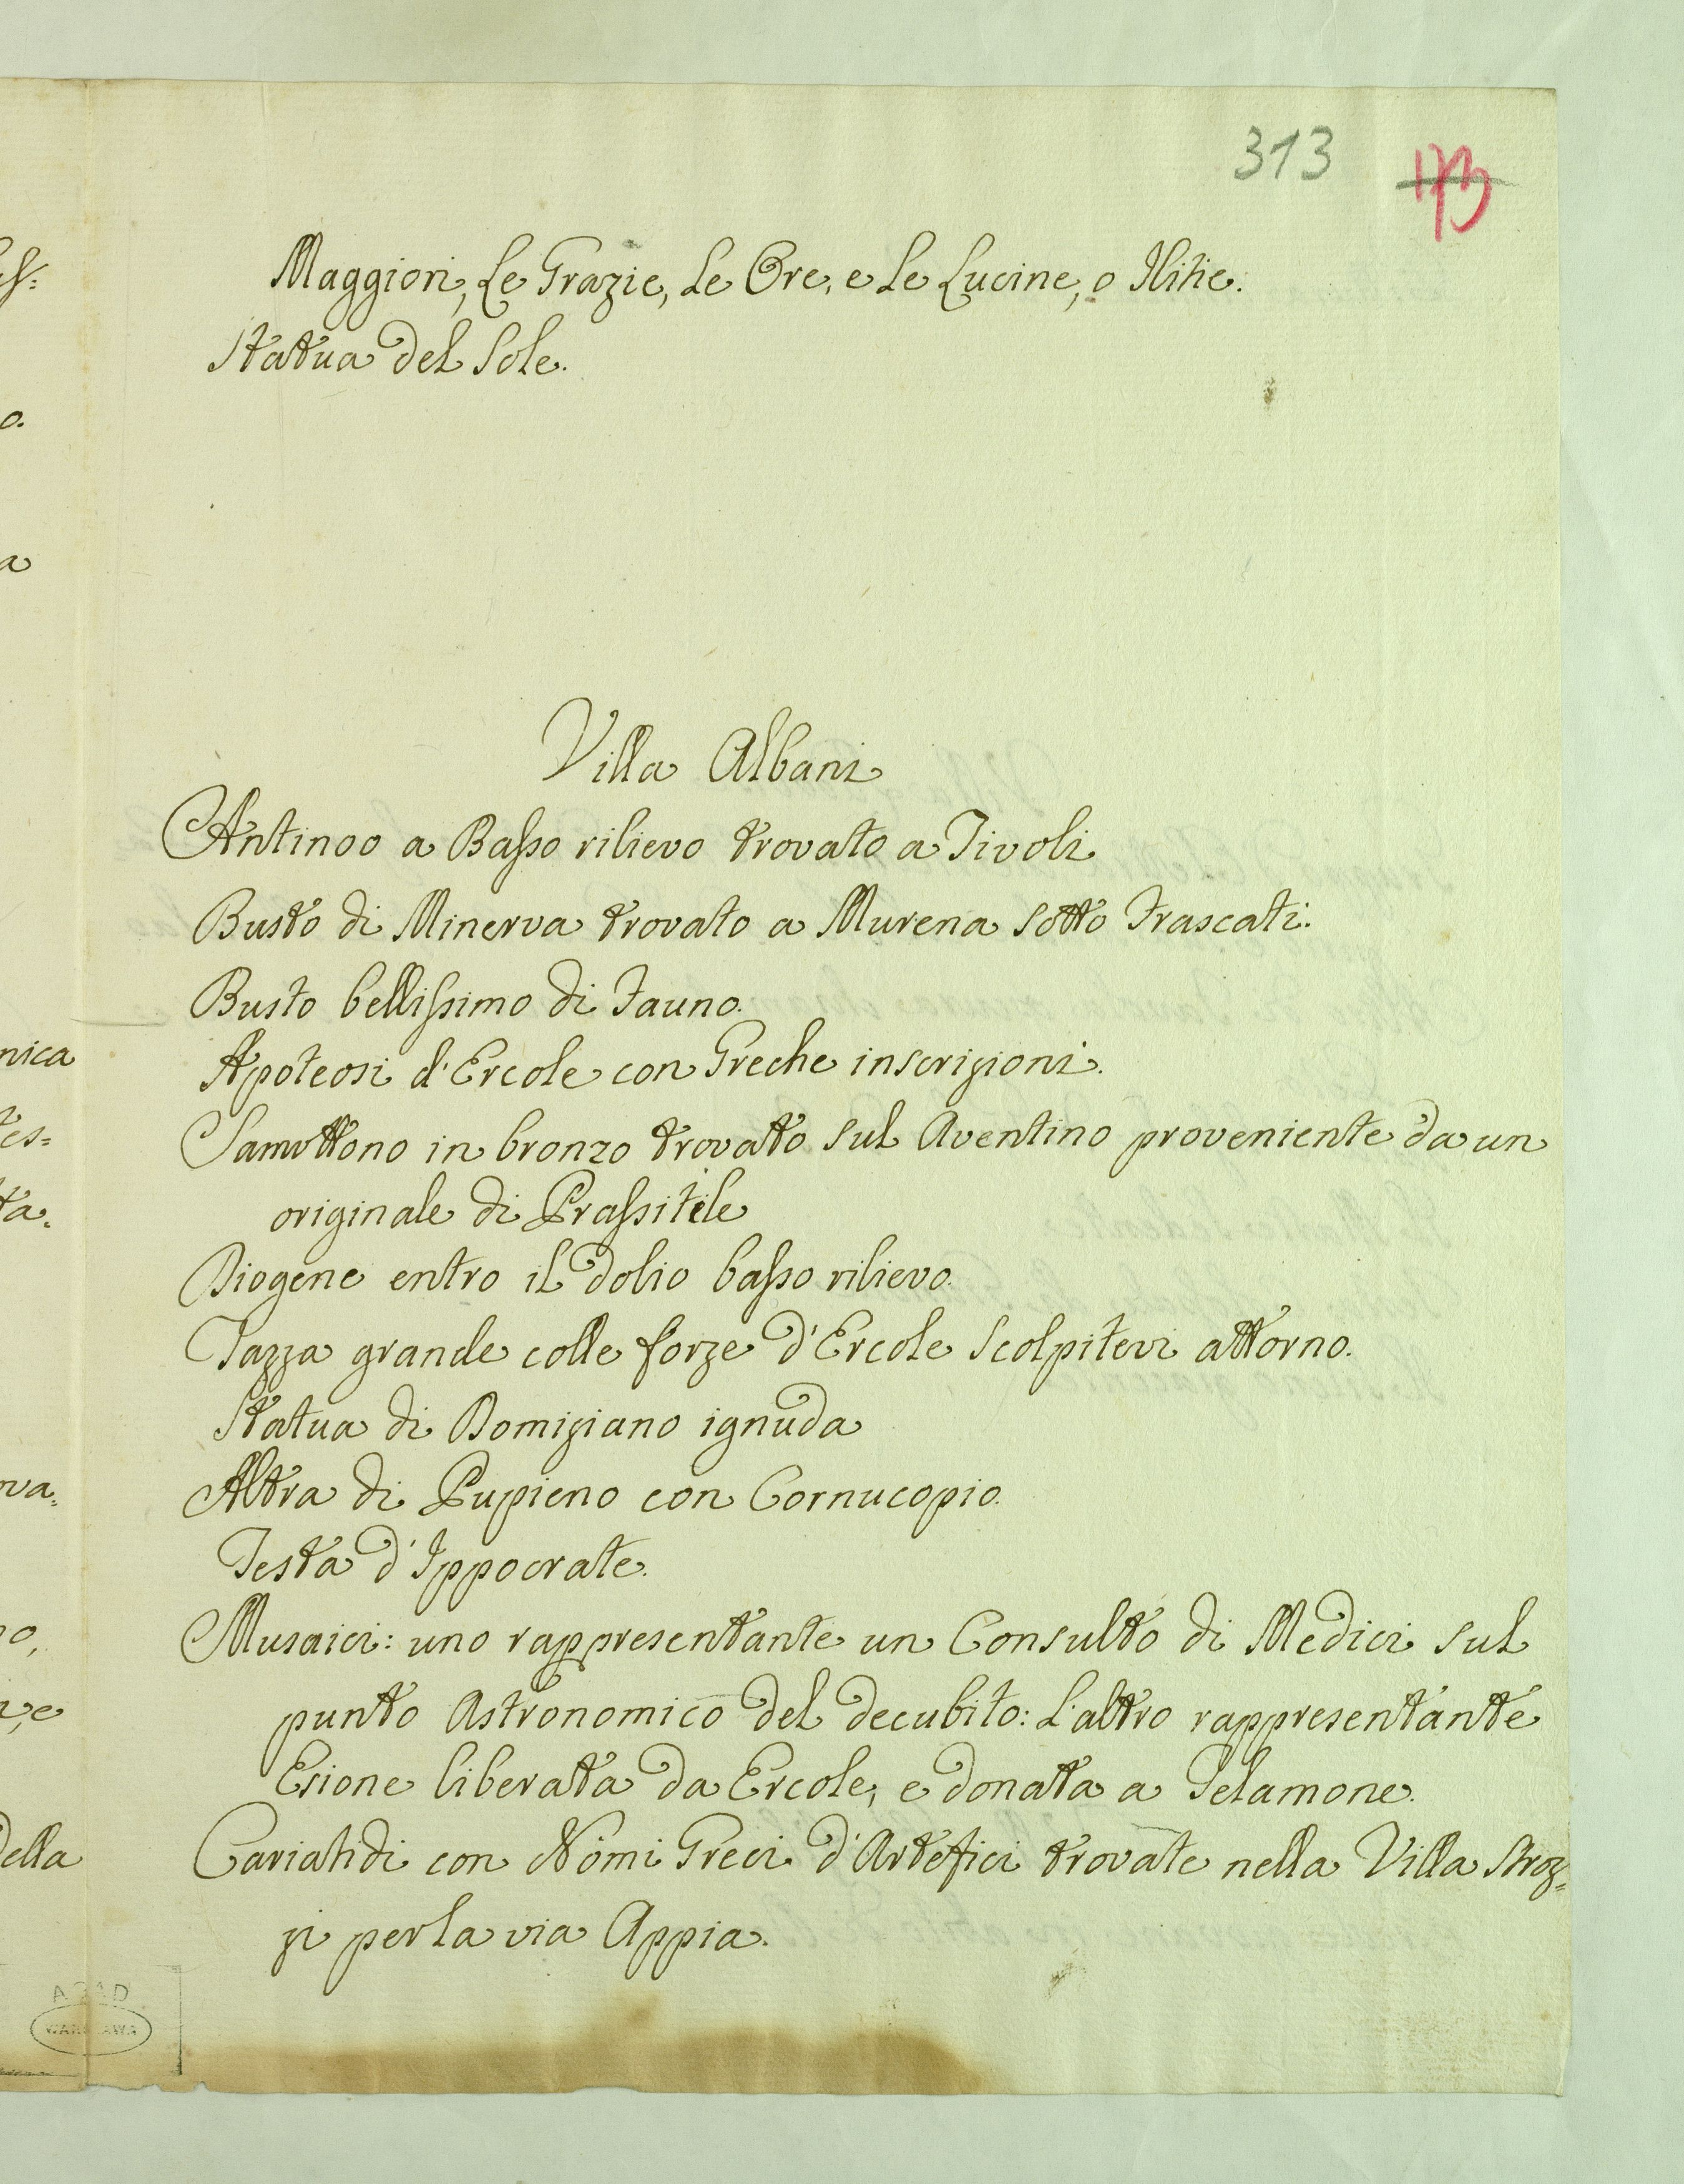 313 173
Maggiori, Le Grazie, Le Ore, e Le Lucine, o Ilitie.
Statua del Sole.
Villa Albani
Antinoo a Basso rilievo trovato a Tivoli
Busto di Minerva trovato a Murena sotto Frascati.
Busto bellissimo di Fauno.
Apoteosi d'Ercole con Greche inscrizioni.
in bronzo trovato sul Aventino proveniente da un
originale di Prassitele
Diogene entro il dolio basso rilievo.
Tazza grande colle forze d'Ercole Scolpitevi attorno.
Statua di Domiziano ignuda
Altra di Pupieno con Cornucopio.
Testa d'Ippocrate.
Musaici: uno rappresentante un Consulto di Medici sul
punto Astronomico del decubito: L'altro rappresentante
Esione liberata da Ercole, e donata a Telamone.
Cariatidi con Nomi Greci d'Artefici trovate nella Villa Stroz=
zi per la via Appia.
nica
tes=
ta.
va=
della
AGAD
WARSZAWA